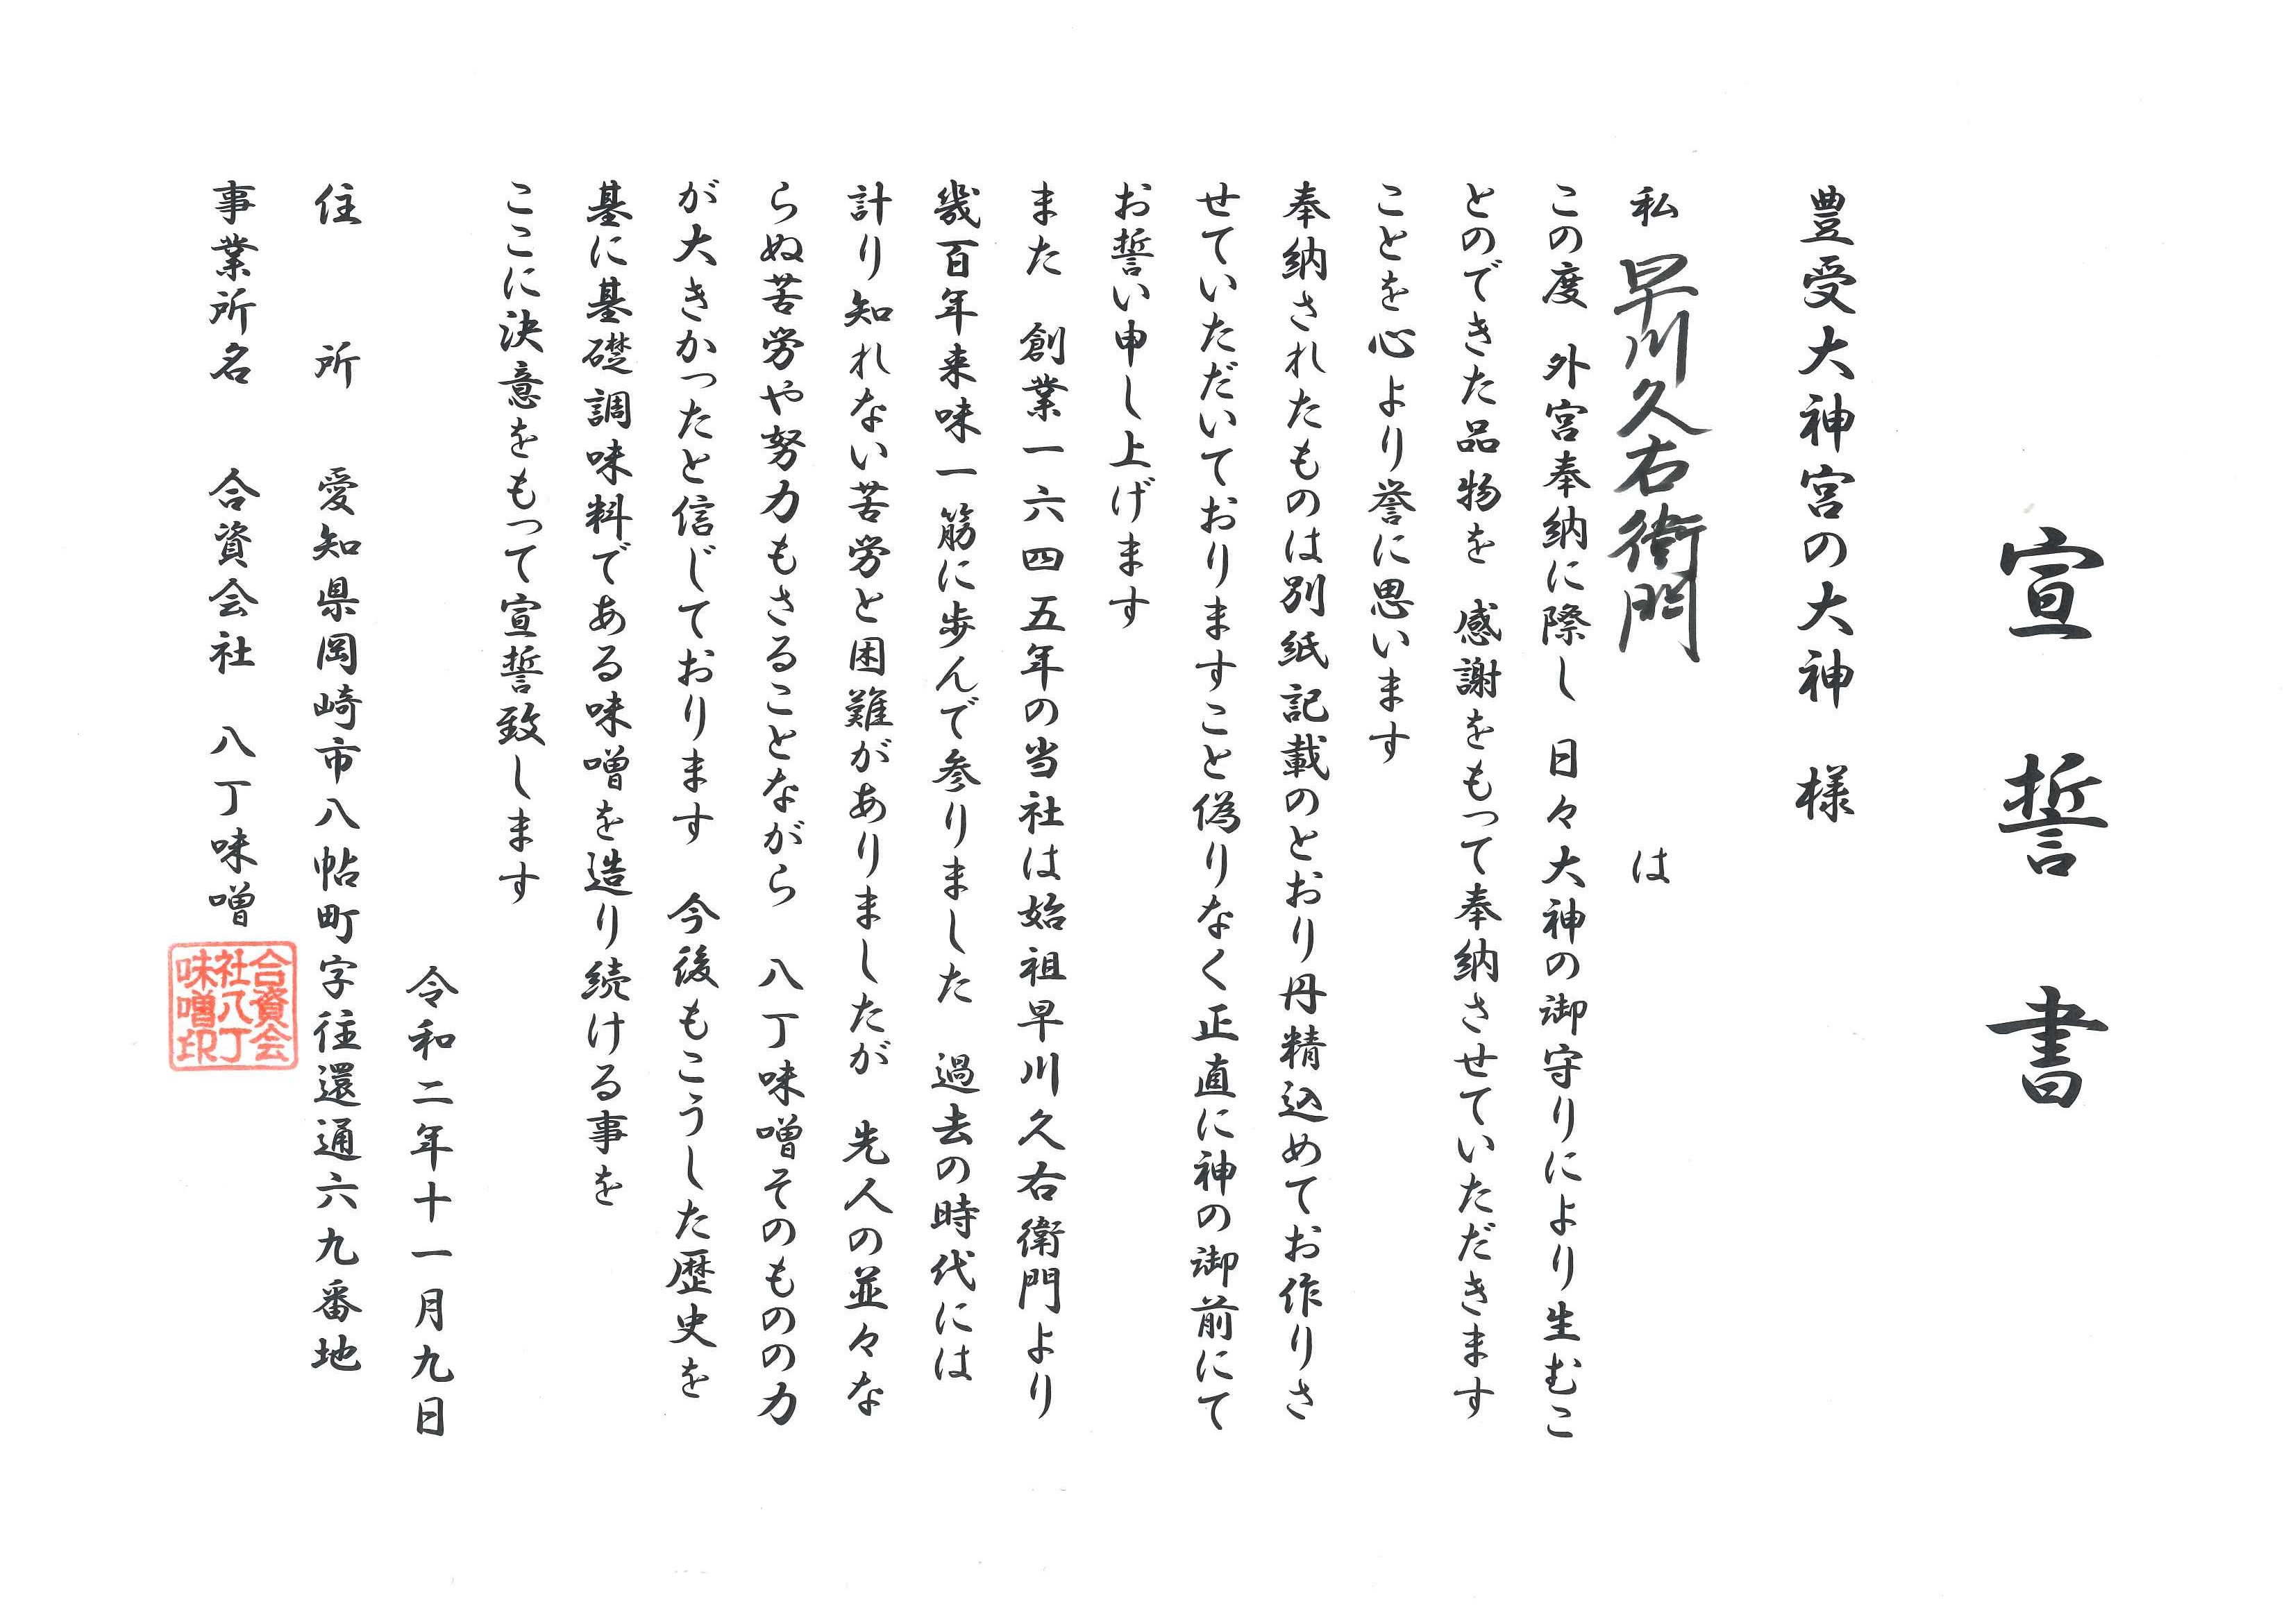 宣誓書
豊受大神宮の大神　様
私　早川久右衛門　は
この度　外宮奉納に際し　日々大神の御守りにより生むこ
とのできた品物を　感謝をもって奉納させていただきます
ことを心より誉に思います
奉納されたものは別紙記載のとおり丹精込めてお作りさ
せていただいておりますこと偽りなく正直に神の御前にて
お誓い申し上げます
また　創業一六四五年の当社は始祖早川久右衛門より
幾百年来味一筋に歩んで参りました　過去の時代には
計り知れない苦労と困難がありましたが　先人の並々な
らぬ苦労や努力もさることながら　八丁味噌そのものの力
が大きかったと信じております　今後もこうした歴史を
基に基礎調味料である味噌を造り続ける事を
ここに決意をもって宣誓致します
令和二年十一月九日
住　所　愛知県岡崎市八帖町字往還通六九番地
事業所名　合資会社　八丁味噌
合資会
社八丁
味噌印